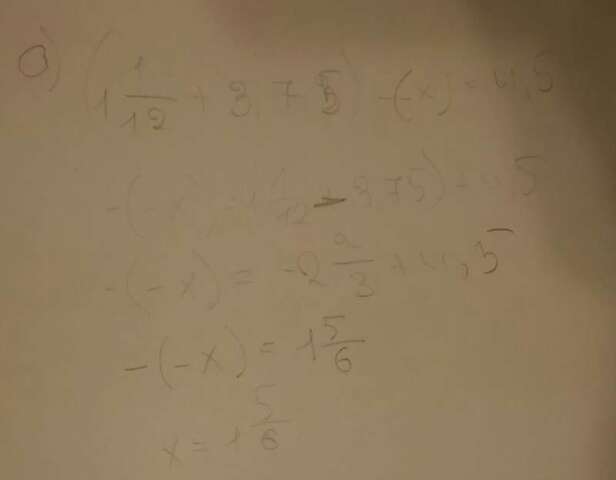 a) (1 1/12 + 3,75) -(-x) = 4,5
-(-x) = 1 1/12 - 3,75) + 4,5
-(-x) = -2 2/3 + 4,5
-(-x) = 1 5/6
x = 1 5/6